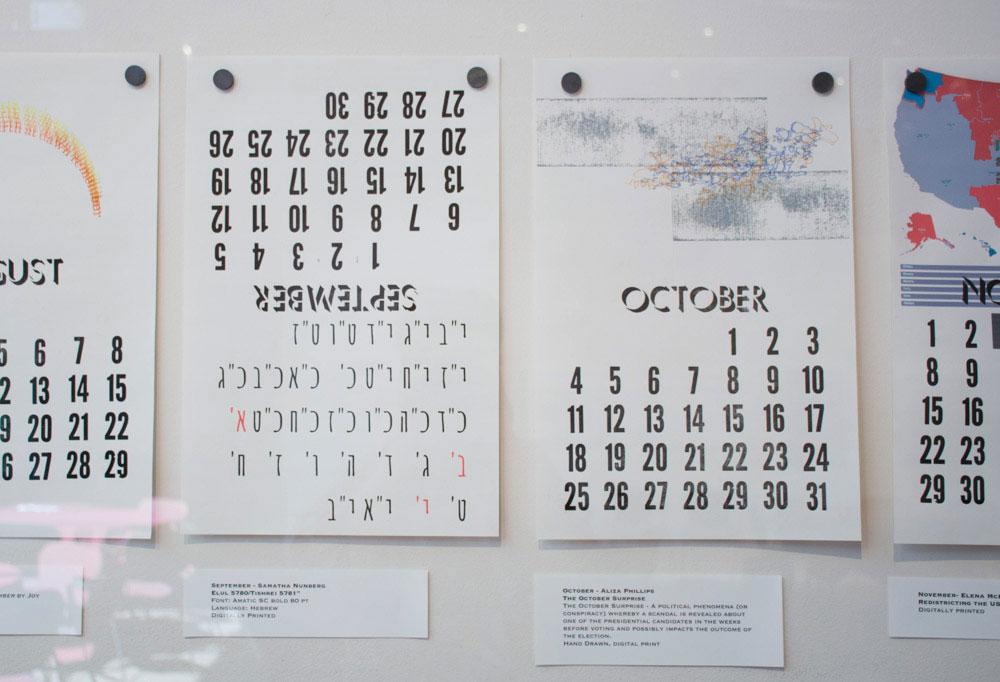 GUST
5 6 7 8
2 13 14 15
9 20 21 22
6 27 28 29
BER BY JOY
SEPTEMBER
1 2 3 4 5
6 7 8 9 10 11 12
13 14 15 16 17 18 19
20 21 22 23 24 25 26
27 28 29 30
י"ב י"ג י"ד ט"ו ט"ז
י"ז י"ח י"ט כ' כ"א כ"ב כ"ג
כ"ד כ"ה כ"ו כ"ז כ"ח כ"ט א'
ב' ג' ד' ה' ו' ז' ח'
ט' י' י"א י"ב
SEPTEMBER - SAMATHA NUNBERG
ELUL 5780/TISHREI 5781"
FONT: AMATIC SC BOLD 80 PT
LANGUAGE: HEBREW
DIGITALLY PRINTED
OCTOBER
1 2 3
4 5 6 7 8 9 10
11 12 13 14 15 16 17
18 19 20 21 22 23 24
25 26 27 28 29 30 31
OCTOBER - ALIZA PHILLIPS
THE OCTOBER SURPRISE
THE OCTOBER SURPRISE - A POLITICAL PHENOMENA (OR
CONSPIRACY) WHEREBY A SCANDAL IS REVEALED ABOUT
ONE OF THE PRESIDENTIAL CANDIDATES IN THE WEEKS
BEFORE VOTING AND POSSIBLY IMPACTS THE OUTCOME OF
THE ELECTION.
HAND DRAWN, DIGITAL PRINT
NO
1 2
8 9
15 16
22 23
29 30
NOVEMBER- ELENA MC
REDISTRICTING THE US
DIGITALLY PRINTED